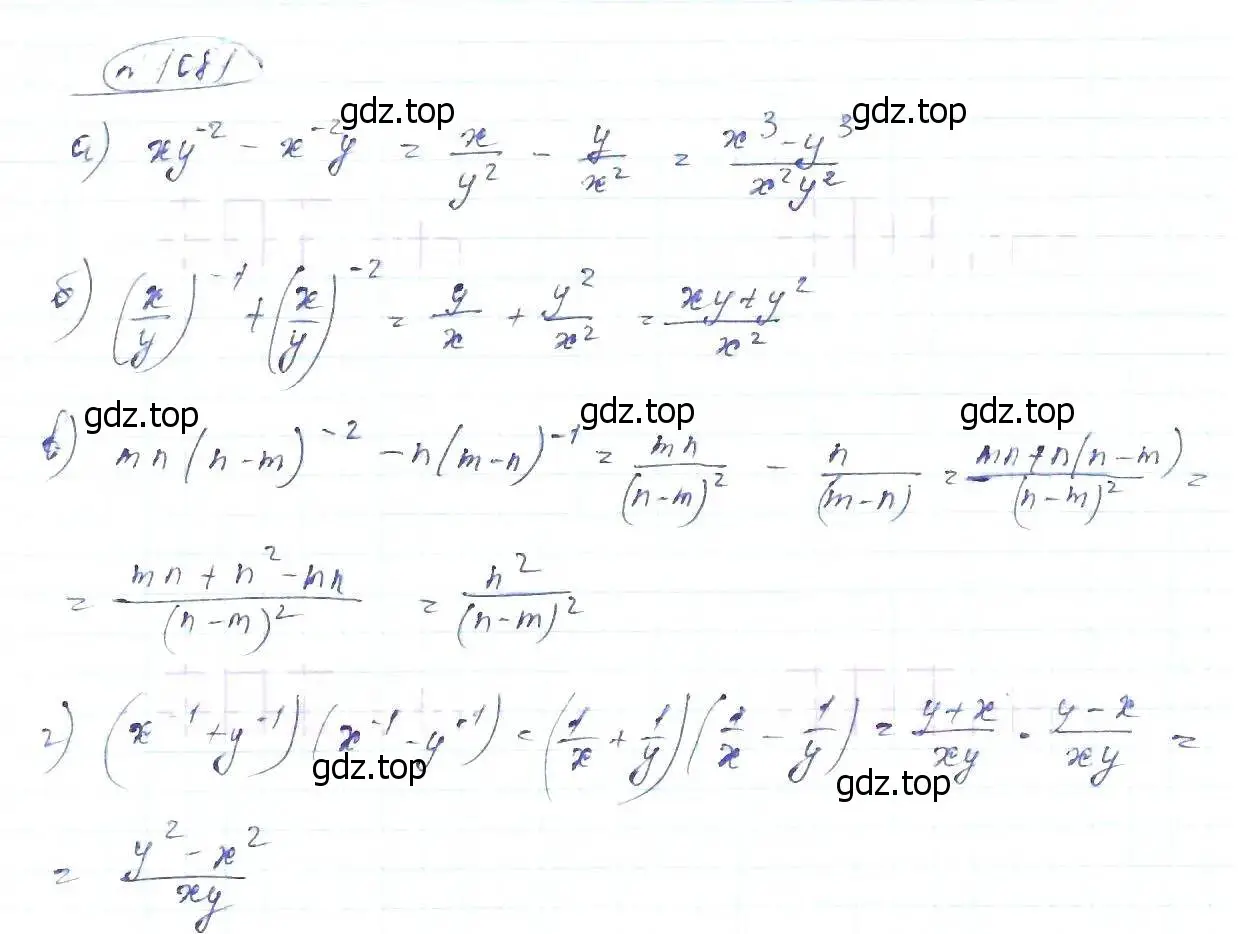 n 1081
gdz.top
а) xy⁻² - x⁻²y = x/y² - y/x² = (x³ - y³)/(x²y²)
gdz.top
б) (x/y)⁻¹ + (x/y)⁻² = y/x + y²/x² = (xy + y²)/x²
gdz.top gdz.top gdz.top
в) mn(n-m)⁻² - n(m-n)⁻¹ = mn/(n-m)² - n/(m-n) = (mn + n(n-m))/(n-m)² =
= (mn + n² - mn)/(n-m)² = n²/(n-m)²
г) (x⁻¹ + y⁻¹)(x⁻¹ - y⁻¹) = (1/x + 1/y)(1/x - 1/y) = (y+x)/(xy) · (y-x)/(xy) =
gdz.top gdz.top
= (y² - x²)/(xy)